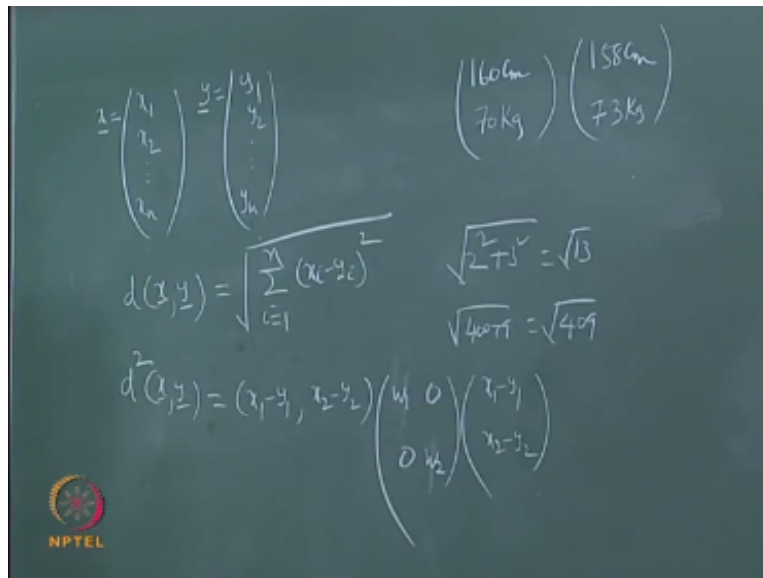 x = (x1 x2 ⋮ xn) y = (y1 y2 ⋮ yn)
(160cm 70Kg) (158cm 73Kg)
d(x,y) = √(∑_{i=1}^{n} (xi-yi)^2)
√(2^2+3^2) = √13
√(400+9) = √409
d^2(x,y) = (x1-y1, x2-y2) (w1 0 0 w2) (x1-y1 x2-y2)
NPTEL